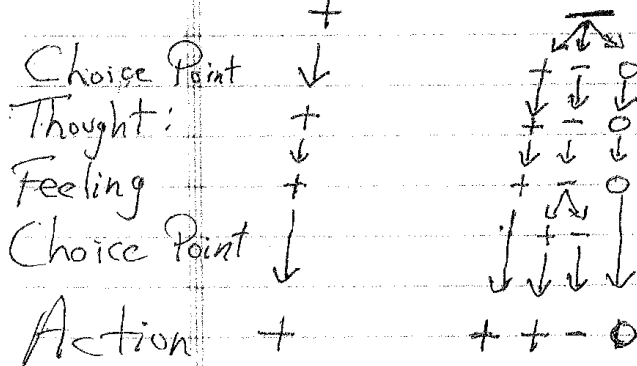 + —
Choice Point + - O
Thought: + + - O
Feeling + + - O
Choice Point + -
Action + + + - O